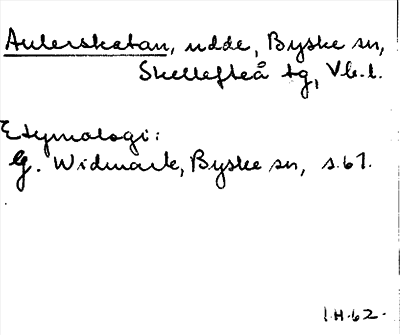 Aulerskatan, udde, Byske sn,
Skellefteå tg, Vb.l.
Etymologi:
G. Widmark, Byske sn, s.61.
I.H.62.